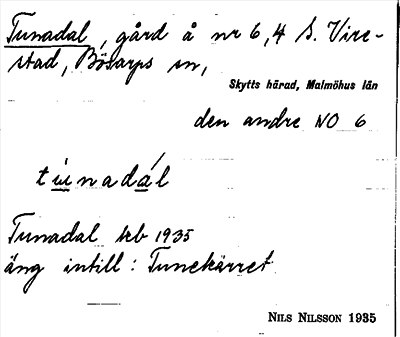 Tunadal, gård å nr 6,4 S. Vire-
stad, Bösarps sn,
Skytts härad, Malmöhus län
den andre NO 6
túnadál
Tunadal kb 1935
äng intill: Tunekärret
NILS NILSSON 1935